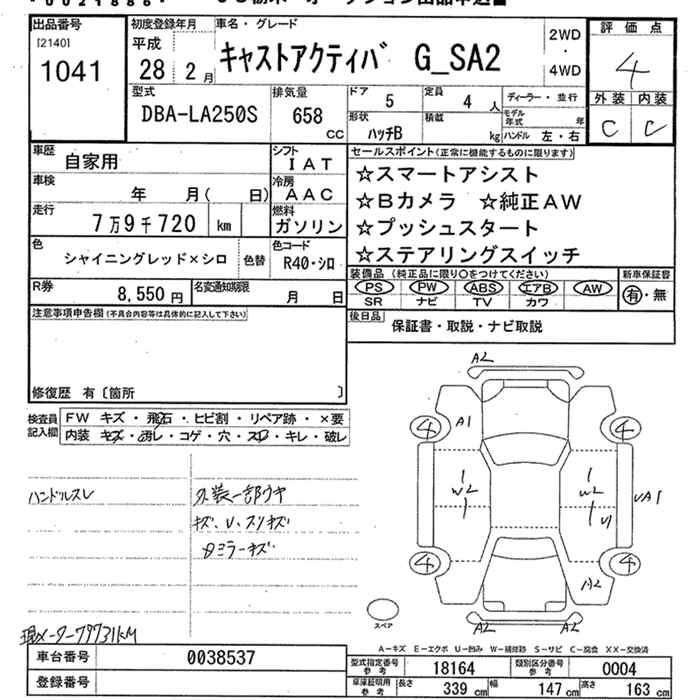 出品番号
[2140]
1041
初度登録年月
平成
28 2月
車名・グレード
キャストアクティバ G_SA2
2WD
・
4WD
評価点
4
外装 内装
C C
型式
DBA-LA250S
排気量
658
CC
ドア
5
定員
4 人
形状
ハッチB
積載
kg
ディーラー・並行
モデル年式 年
ハンドル 左・右
車歴
自家用
シフト
IAT
車検
年 月( 日)
冷房
AAC
走行
7万9千720 km
燃料
ガソリン
色
シャイニングレッド×シロ
色替
色コード
R40・シロ
R券
8,550円
名変通知期限
月 日
セールスポイント(正常に機能するものに限ります)
☆スマートアシスト
☆Bカメラ ☆純正AW
☆プッシュスタート
☆ステアリングスイッチ
装備品 (純正品に限り○をつけてください)
PS PW ABS エアB AW
SR ナビ TV カワ
新車保証書
有・無
後日品
保証書・取説・ナビ取説
注意事項申告欄(不具合内容等は具体的に記入して下さい)
修復歴 有〔箇所 〕
検査員記入欄
FW キズ・飛石・ヒビ割・リペア跡・×要
内装 キズ・汚レ・コゲ・穴・スレ・キレ・破レ
ハンドルスレ
外装一部ウキ
キズ、U、スリキズ
ミラーキズ
現メーター79731KM
A2
A1
4
4
W2
W2
U1
UA1
4
4
A2
A2
A2
スペア
A-キズ E-エクボ U-凹み W-補修跡 S-サビ C-腐食 XX-交換済
車台番号
0038537
登録番号
型式指定番号
参考
18164
類別区分番号
参考
0004
車庫証明用
参考
長さ 339 cm
幅 147 cm
高さ 163 cm